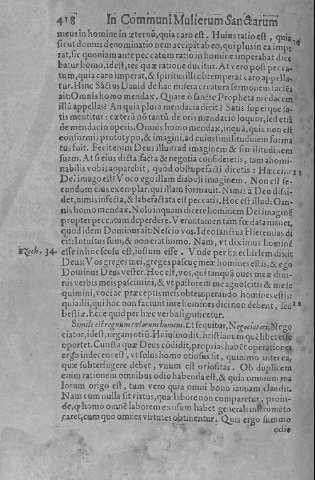 418 In Communi Mulierum Sanctarum
meus in homine in æternũ, quia caro est. Huius ratio est, quia
sicut domus denominationem accipit ab eo, qui plus in ea impe
rat, sic quoniam ante peccatum ratio in homine imperabat dice
batur homo, id est, res quæ ratione ducitur. At vero post pecca-
tum, quia caro imperat, & spiritus illi obtemperat caro appella-
tur. Hinc Sāctus David de hac misera creatura sermonem faciēs
ait: Omnis homo mendax. Quare ò sancte Propheta mendacem
illũ appellas? An quia plura mendacia dicit? Satis superque is-
tis mentitur: cæterũ nō tantũ de oris mendacio loquor, sed etiã
de mendacio operis. Omnis homo mendax, inquã, quia non est
conformis prototypo, & imagini, ad cuius similitudinem forma
tus fuit. Fecit enim Deus illum ad imaginem & similitudinem
suam. At si eius dicta, facta & negotia consideretis, tam abomi-
nabilis vobis apparebit, quod obstupefacti dicetis: Hæccine
Dei imago est? Voco ego illam diaboli imaginem. Non est se-
cundum eius exemplar, qui illam formauit. Nimis à Deo dissi-
det, nimis infecta, & labefactata est peccatis. Hoc est illud: Om-
nis homo mendax. Nolo inquam dicere hominem Dei imaginē
propter peccatum deperdere. Verumtamen tam fœdata manet,
quod idem Dominus ait: Nescio vos. Ideo sanctus Hieremias di
cit: Intuitus sum, & non erat homo. Nam, vt diximus hominē
Ezech. 34. esse in hoc seculo est, iustum esse. Vnde per Ezechielem dixit
Deus: Vos greges mei, greges pascuæ meæ homines estis, & ego
Dominus Deus vester. Hoc est, vos, qui tanquā oues meæ diui-
nis verbis meis pascimini, & vt pastorem me agnoscitis & me se
quimini, vocíæ præceptis meis obtemperando homines estis:
qui aliàs, qui hoc non faciunt ine homines dici non debent, sed
bestiæ. Ecce quid per hæc verba significetur.
Simile est regnum cælorum homini. Et sequitur, Negociatori. Nego
ciator, id est, negans otiũ. Huiusmodi Christianum quēlibet esse
oportet. Cuncta quæ Deus cōdidit, proprias habēt operationes
ergo indecens est, vt solus homo otiosus sit, quia imo interea,
quæ subterfugere debet, vnum est otiositas. Ob duplicem
enim rationem omnibus odio habenda est, & quia omnium ma
lorum origo est, tum vero quia omni bono ianuam claudit.
Nam cum nulla sit virtus, qua labore non comparetur, proin-
de, qui homo omnē laborem exosum habet generali instrumēto
caret, cum quo omnes virtutes obtinentur. Quis ergo summo
odio